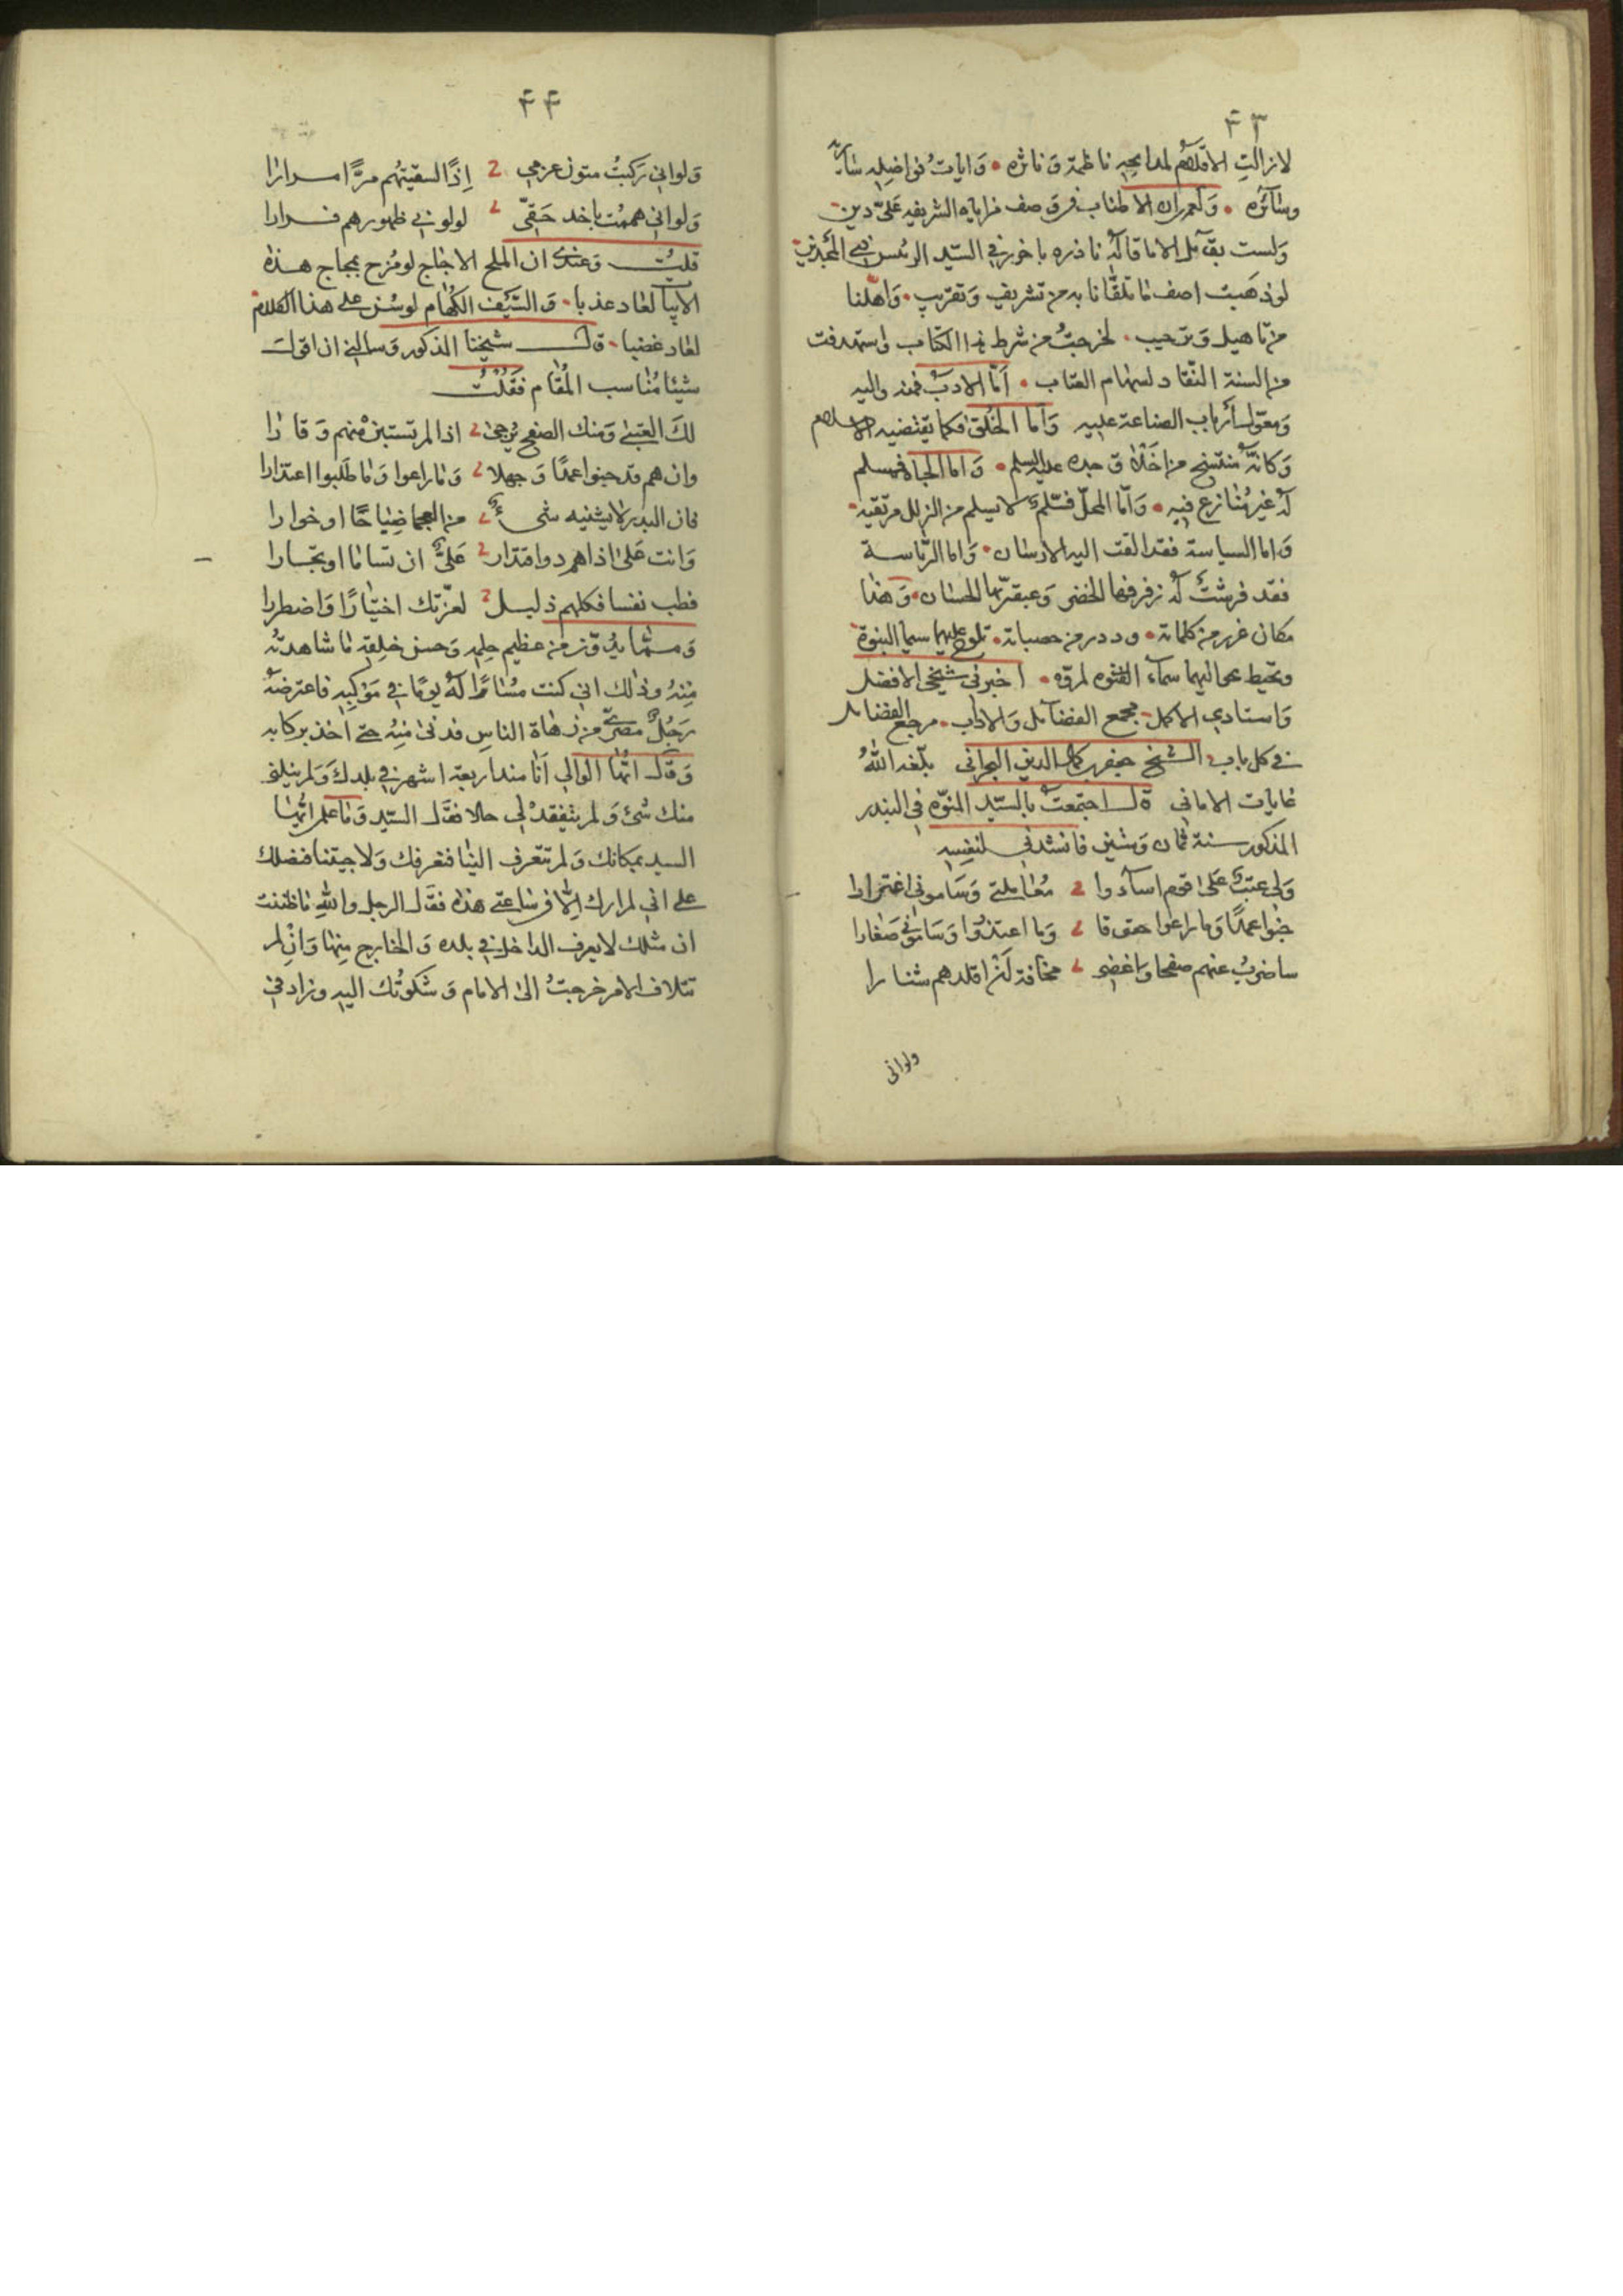 ٤٣
لازالت الاقلام لمدايحه ناظمة وناثره وايات فواضله
وسائره ولعمري ان الاطناب في وصف مزاياه الشريفه علي دين
ولست بقائل الا ما قاله باخرزي في السيد الرئيس ذي المجدين
لو ذهبت اصف ما تلقانا به من تشريف وتقريب واهلنا
من تاهيل وترحيب لخرجت من شرط هذا الكتاب واستهدفت
من السنة النقاد لسهام العتاب اما الادب فمنه واليه
ومعول سائر ارباب الصناعة عليه واما الخلق فكما يقتضيه الاسلام
وكانه منتسخ من اخلاق جده عليه السلام واما الجاه فمسلم
له غير منازع فيه واما المحل فسلم لا يسلم من الزلل مرتقيه
واما السياسة فقد القت اليه الارسان واما الرئاسة
فقد فرشت له رفرفها الخضر وعبقريها الحسان وهذا
مكان غرر من كلماته ودرر من حصياته تلوح عليها سيما النبوة
وتحيط بجوانبها سماء الفتوه المروه اخبرني شيخي الافضل
واستادي الاكمل مجمع الفضائل والاداب مرجع الفضايل
في كل باب الشيخ جعفر كمال الدين البحراني بلغه الله
غايات الاماني قال اجتمعت بالسيد المنوه في البندر
المذكور سنة ثمان وستين فانشدني لنفسه
ولي عتب على قوم اساؤوا معاملتي وساموني اغترارا
جنوا عمدا وما راعوا حقوقا وما اعتذروا وساموني صغارا
ساضرب عنهم صفحا واغضي مخافة لن اقلدهم شنارا
ولواني
٤٤
ولواني ركبت متون عزمي اذا لسقيتهم مرا مرارا
ولواني هممت باخد حقي لولوني ظهورهم فرارا
قلت وعندي ان الملح الاجاج لو مزج بمجاج هذه
الابيات لعاد عذبا والسيف الكهام لو سن على هذا الكلام
لعاد غضبا قال شيخنا المذكور وسالني ان اقول
شيئا مناسب المقام فقلت
لك العتبى ومنك الصفح يرجى اذا لم تستبن منهم وقارا
وان هم قد جنوا عمدا وجهلا وما راعوا وما طلبوا اعتذارا
فان البدر لا يثنيه شيء من العجما ضياحا او خوارا
وانت على اذاهم ذو اقتدار علي ان تساما او تجارا
فطب نفسا فكلهم ذليل لعزتك اختيارا واضطرارا
ومما يذوق من عظيم حلمه وحسن خلقه ما شاهدته
منه وذلك اني كنت مسامرا له يوما في موكبه فاعترضه
رجل مصري من دهاة الناس فدنى منه حتى اخذ بركابه
وقال ايها الوالي انا منذ اربعة اشهر في بلدك ولم ينلني
منك شئ ولم يتفقد لي حالا فقال السيد وما علم ايها
السيد بمكانك ولم تتعرف الينا فنعرفك ولا جيتنا فنصلك
على اني لم ارك الا في ساعتي هذه فقال الرجل والله ما ظننت
ان مثلك لا يعرف الداخل في بلده والخارج منها وان لم
تتلاف الامر خرجت الى الامام وشكوتك اليه وزاد في